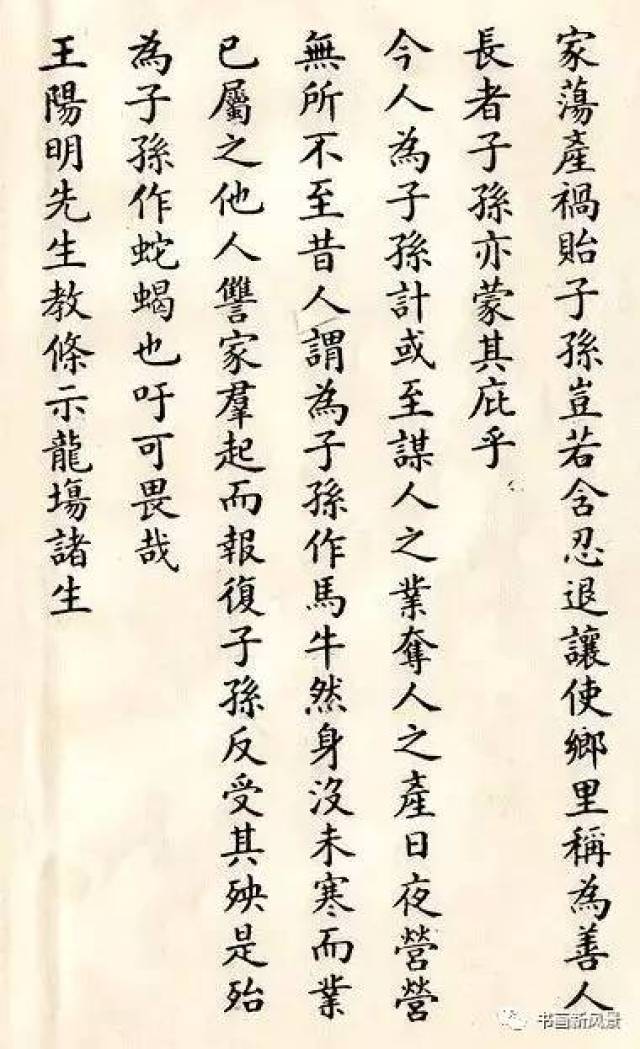 家蕩產禍貽子孫豈若含忍退讓使鄉里稱為善人
長者子孫亦蒙其庇乎
今人為子孫計或至謀人之業奪人之產日夜營營
無所不至昔人謂為子孫作馬牛然身没未寒而業
已屬之他人讐家羣起而報復子孫反受其殃是殆
為子孫作蛇蝎也吁可畏哉
王陽明先生教條示龍塲諸生
书画新风景